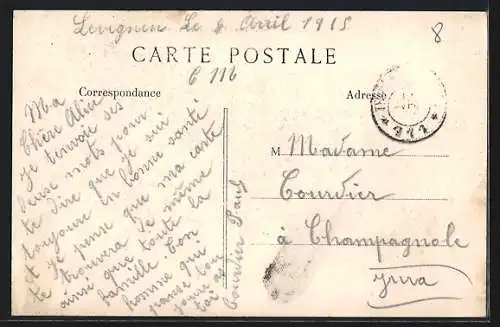 Levignen Le 8 Avril 1915
8
CARTE POSTALE
C 116
Correspondance
Adresse
Ma
Chère Alice
Je t'envoie ses
deux mots pour
te dire que je suis
toujours en bonne santé
et je pense que ma carte
te trouvera de même
ainsi que toute la
famille. Ton
homme qui
pense tou
jours à
toi
Courdier Paul
M Madame
Courdier
à Champagnole
Jura